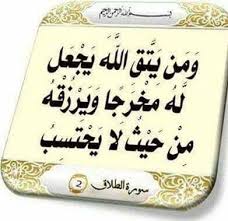 بسم الله الرحمن الرحيم
وَمَن يَتَّقِ اللَّهَ يَجْعَل
لَّهُ مَخْرَجًا وَيَرْزُقْهُ
مِنْ حَيْثُ لَا يَحْتَسِبُ
سورة الطلاق 2